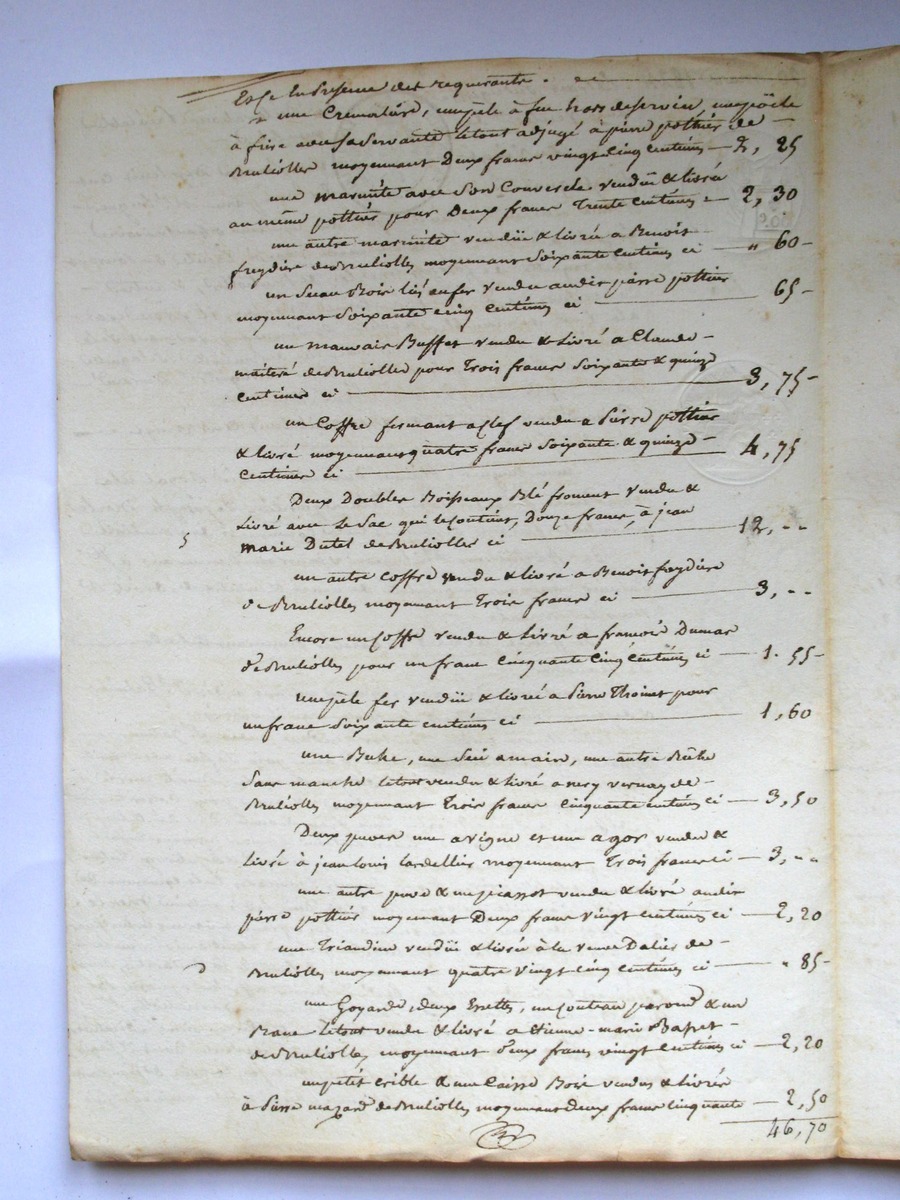 Et ce en presence des requerants.
une Cremaliere, une pele à feu hors de service, une poële
à frire avec sa servante le tout adjugé à pierre pottier de
Bruliolles moyennant Deux francs vingt cinq centimes — 2, 25
une marmitte avec son Couvercle vendüe & livrée
au même pottier pour Deux francs Trente centimes — 2, 30
une autre marmitte vendüe & livrée a Benoit
freydire de Brulliolles moyennant soixante centimes ci — " 60
un Seau Bois lié en fer vendu audit pierre pottier
moyennant soixante cinq centimes ci — 65
un mauvais Buffet vendu & livré a Claude
de Brulliolles pour Trois francs soixante & quinze
centimes ci — 3, 75
un Coffre fermant a clef vendu a Pierre pottier
& livré moyennant quatre francs soixante & quinze
centimes ci — 4, 75
Deux Doubles Boisseaux Blé froment vendu &
livré avec le sac qui le contient, Douze francs, à jean
marie Dutel de Brulliolles ci — 12, --
un autre coffre vendu & livré a Benoit freydire
de Brulliolles moyennant Trois francs ci — 3, --
Encore un Coffre vendu & livré a francois Dumas
de Brulliolles pour un franc cinquante cinq centimes ci — 1. 55
une pele fer vendüe & livrée a Pierre Thoinet pour
un franc soixante centimes ci — 1, 60
une Beche, une Scie a main, une autre Bêche
sans manche le tout vendu & livré a vernay de
Brulliolles moyennant Trois francs cinquante centimes ci — 3, 50
Deux une a vigne et une a vendu &
livré à jean louis moyennant Trois francs ci — 3, --
une autre & un vendu & livré audit
pierre pottier moyennant Deux francs vingt centimes ci — 2, 20
une Triandine vendüe & livrée à la veuve Dalies de
Brulliolles moyennant quatre vingt cinq centimes ci — " 85
une Goyarde, deux un couteau & un
le tout vendu & livré a Etienne-marie Basset
de Brulliolles moyennant deux francs vingt centimes ci — 2, 20
un petit crible & une Caisse Bois vendus & livrés
à Pierre de Brulliolles moyennant deux francs cinquante — 2, 50
46, 70